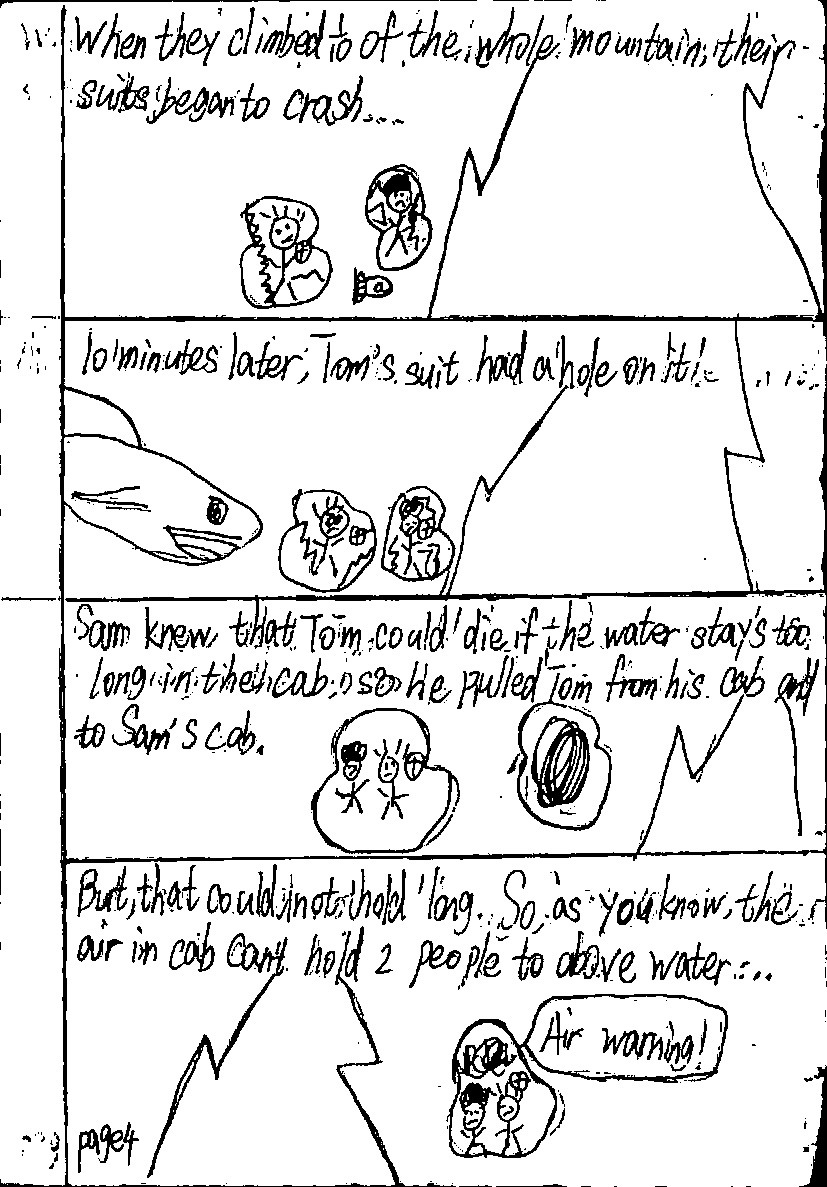 When they climbed to of the whole mountain, their
suits began to crash...
10 minutes later, Tom's suit had a hole on it!
Sam knew that Tom could die if the water stay's too
long in the cab, so he pulled Tom from his cab and
to Sam's cab.
But, that could not hold long. So, as you know, the
air in cab can't hold 2 people to above water...
Air warning!
page4